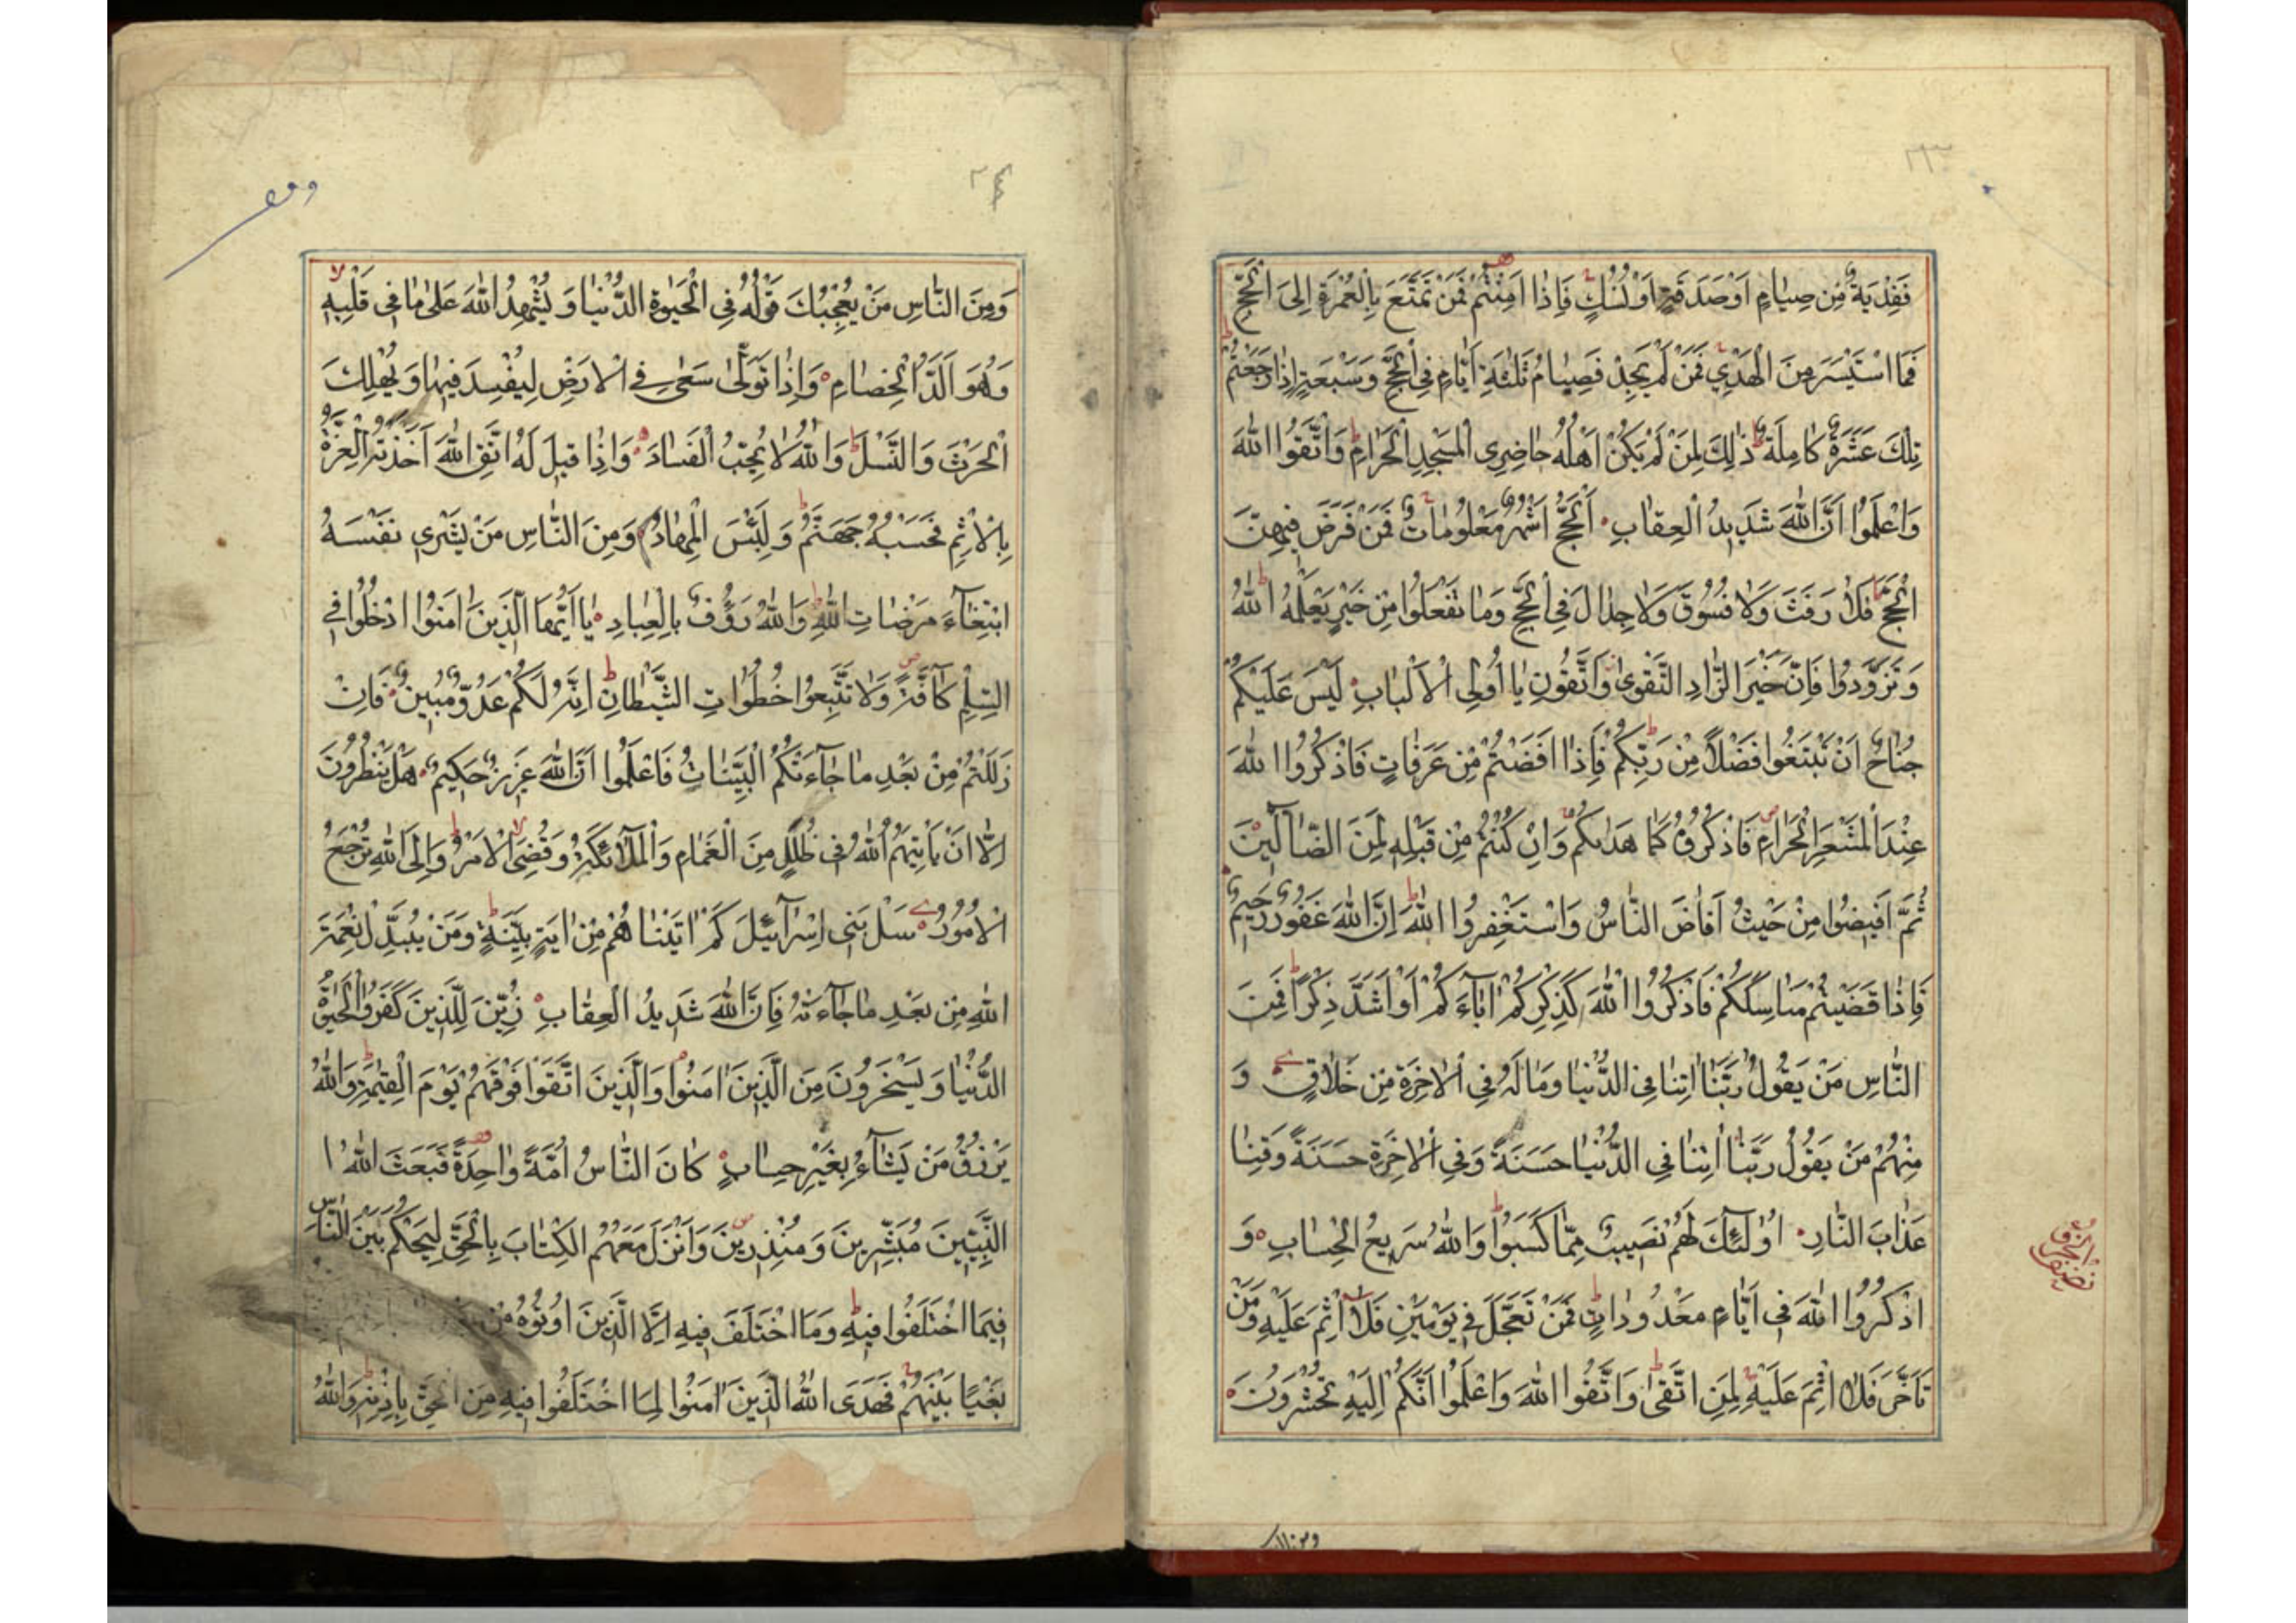 ٢٣
فَفِدْيَةٌ مِنْ صِيَامٍ اَوْ صَدَقَةٍ اَوْ نُسُكٍ فَاِذَا اَمِنْتُمْ فَمَنْ تَمَتَّعَ بِالْعُمْرَةِ اِلَى الْحَجِّ
فَمَا اسْتَيْسَرَ مِنَ الْهَدْيِ فَمَنْ لَمْ يَجِدْ فَصِيَامُ ثَلٰثَةِ اَيَّامٍ فِي الْحَجِّ وَسَبْعَةٍ اِذَا رَجَعْتُمْ
تِلْكَ عَشَرَةٌ كَامِلَةٌ ذٰلِكَ لِمَنْ لَمْ يَكُنْ اَهْلُهُ حَاضِرِى الْمَسْجِدِ الْحَرَامِ وَاتَّقُوا اللّٰهَ
وَاعْلَمُوا اَنَّ اللّٰهَ شَدِيدُ الْعِقَابِ اَلْحَجُّ اَشْهُرٌ مَعْلُومَاتٌ فَمَنْ فَرَضَ فِيهِنَّ
الْحَجَّ فَلَا رَفَثَ وَلَا فُسُوقَ وَلَا جِدَالَ فِي الْحَجِّ وَمَا تَفْعَلُوا مِنْ خَيْرٍ يَعْلَمْهُ اللّٰهُ
وَتَزَوَّدُوا فَاِنَّ خَيْرَ الزَّادِ التَّقْوٰى وَاتَّقُونِ يَا اُولِى الْاَلْبَابِ لَيْسَ عَلَيْكُمْ
جُنَاحٌ اَنْ تَبْتَغُوا فَضْلًا مِنْ رَبِّكُمْ فَاِذَا اَفَضْتُمْ مِنْ عَرَفَاتٍ فَاذْكُرُوا اللّٰهَ
عِنْدَ الْمَشْعَرِ الْحَرَامِ فَاذْكُرُوهُ كَمَا هَدٰىكُمْ وَاِنْ كُنْتُمْ مِنْ قَبْلِهِ لَمِنَ الضَّآلِّينَ
ثُمَّ اَفِيضُوا مِنْ حَيْثُ اَفَاضَ النَّاسُ وَاسْتَغْفِرُوا اللّٰهَ اِنَّ اللّٰهَ غَفُورٌ رَحِيمٌ
فَاِذَا قَضَيْتُمْ مَنَاسِكَكُمْ فَاذْكُرُوا اللّٰهَ كَذِكْرِكُمْ اٰبَآءَكُمْ اَوْ اَشَدَّ ذِكْرًا فَمِنَ
النَّاسِ مَنْ يَقُولُ رَبَّنَا اٰتِنَا فِي الدُّنْيَا وَمَا لَهُ فِي الْاٰخِرَةِ مِنْ خَلَاقٍ وَ
مِنْهُمْ مَنْ يَقُولُ رَبَّنَا اٰتِنَا فِي الدُّنْيَا حَسَنَةً وَفِي الْاٰخِرَةِ حَسَنَةً وَقِنَا
عَذَابَ النَّارِ اُولٰٓئِكَ لَهُمْ نَصِيبٌ مِمَّا كَسَبُوا وَاللّٰهُ سَرِيعُ الْحِسَابِ وَ
اذْكُرُوا اللّٰهَ فِي اَيَّامٍ مَعْدُودَاتٍ فَمَنْ تَعَجَّلَ فِي يَوْمَيْنِ فَلَا اِثْمَ عَلَيْهِ وَمَنْ
تَاَخَّرَ فَلَا اِثْمَ عَلَيْهِ لِمَنِ اتَّقٰى وَاتَّقُوا اللّٰهَ وَاعْلَمُوا اَنَّكُمْ اِلَيْهِ تُحْشَرُونَ
وَمِنَ النَّاسِ مَنْ يُعْجِبُكَ قَوْلُهُ فِي الْحَيٰوةِ الدُّنْيَا وَيُشْهِدُ اللّٰهَ عَلٰى مَا فِي قَلْبِهِ
وَهُوَ اَلَدُّ الْخِصَامِ وَاِذَا تَوَلّٰى سَعٰى فِي الْاَرْضِ لِيُفْسِدَ فِيهَا وَيُهْلِكَ
الْحَرْثَ وَالنَّسْلَ وَاللّٰهُ لَا يُحِبُّ الْفَسَادَ وَاِذَا قِيلَ لَهُ اتَّقِ اللّٰهَ اَخَذَتْهُ الْعِزَّةُ
بِالْاِثْمِ فَحَسْبُهُ جَهَنَّمُ وَلَبِئْسَ الْمِهَادُ وَمِنَ النَّاسِ مَنْ يَشْرِي نَفْسَهُ
ابْتِغَآءَ مَرْضَاتِ اللّٰهِ وَاللّٰهُ رَؤُفٌ بِالْعِبَادِ يَا اَيُّهَا الَّذِينَ اٰمَنُوا ادْخُلُوا فِي
السِّلْمِ كَآفَّةً وَلَا تَتَّبِعُوا خُطُوَاتِ الشَّيْطَانِ اِنَّهُ لَكُمْ عَدُوٌّ مُبِينٌ فَاِنْ
زَلَلْتُمْ مِنْ بَعْدِ مَا جَآءَتْكُمُ الْبَيِّنَاتُ فَاعْلَمُوا اَنَّ اللّٰهَ عَزِيزٌ حَكِيمٌ هَلْ يَنْظُرُونَ
اِلَّا اَنْ يَاْتِيَهُمُ اللّٰهُ فِي ظُلَلٍ مِنَ الْغَمَامِ وَالْمَلٰٓائِكَةُ وَقُضِيَ الْاَمْرُ وَاِلَى اللّٰهِ تُرْجَعُ
الْاُمُورُ سَلْ بَنِى اِسْرَآئِيلَ كَمْ اٰتَيْنَاهُمْ مِنْ اٰيَةٍ بَيِّنَةٍ وَمَنْ يُبَدِّلْ نِعْمَةَ
اللّٰهِ مِنْ بَعْدِ مَا جَآءَتْهُ فَاِنَّ اللّٰهَ شَدِيدُ الْعِقَابِ زُيِّنَ لِلَّذِينَ كَفَرُوا الْحَيٰوةُ
الدُّنْيَا وَيَسْخَرُونَ مِنَ الَّذِينَ اٰمَنُوا وَالَّذِينَ اتَّقَوْا فَوْقَهُمْ يَوْمَ الْقِيٰمَةِ وَاللّٰهُ
يَرْزُقُ مَنْ يَشَآءُ بِغَيْرِ حِسَابٍ كَانَ النَّاسُ اُمَّةً وَاحِدَةً فَبَعَثَ اللّٰهُ ا
النَّبِيّٖنَ مُبَشِّرِينَ وَمُنْذِرِينَ وَاَنْزَلَ مَعَهُمُ الْكِتَابَ بِالْحَقِّ لِيَحْكُمَ بَيْنَ النَّاسِ
فِيمَا اخْتَلَفُوا فِيهِ وَمَا اخْتَلَفَ فِيهِ اِلَّا الَّذِينَ اُوتُوهُ مِنْ
بَغْيًا بَيْنَهُمْ فَهَدَى اللّٰهُ الَّذِينَ اٰمَنُوا لِمَا اخْتَلَفُوا فِيهِ مِنَ الْحَقِّ بِاِذْنِهِ وَاللّٰهُ